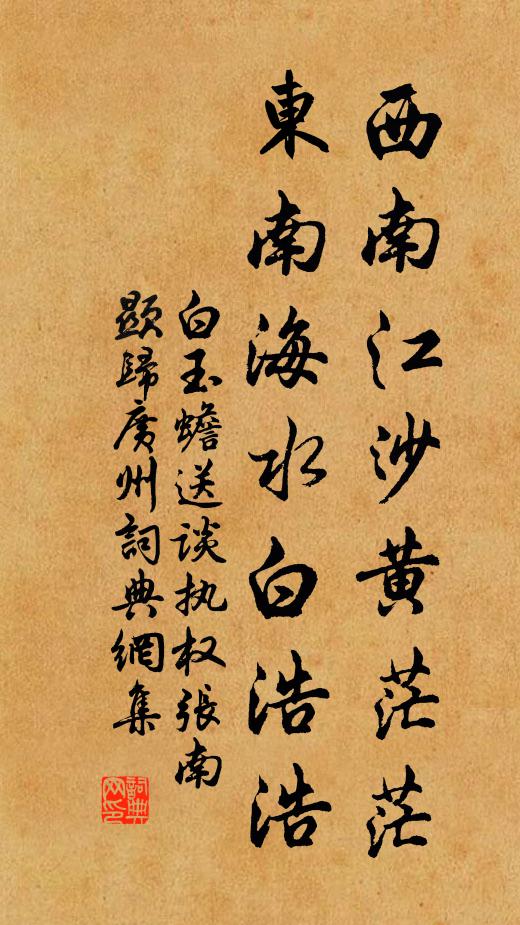 西南江沙黄茫茫
東南海水白浩浩
白玉蟾送談执权張南
顯歸廣州詞典網集
詞典网印